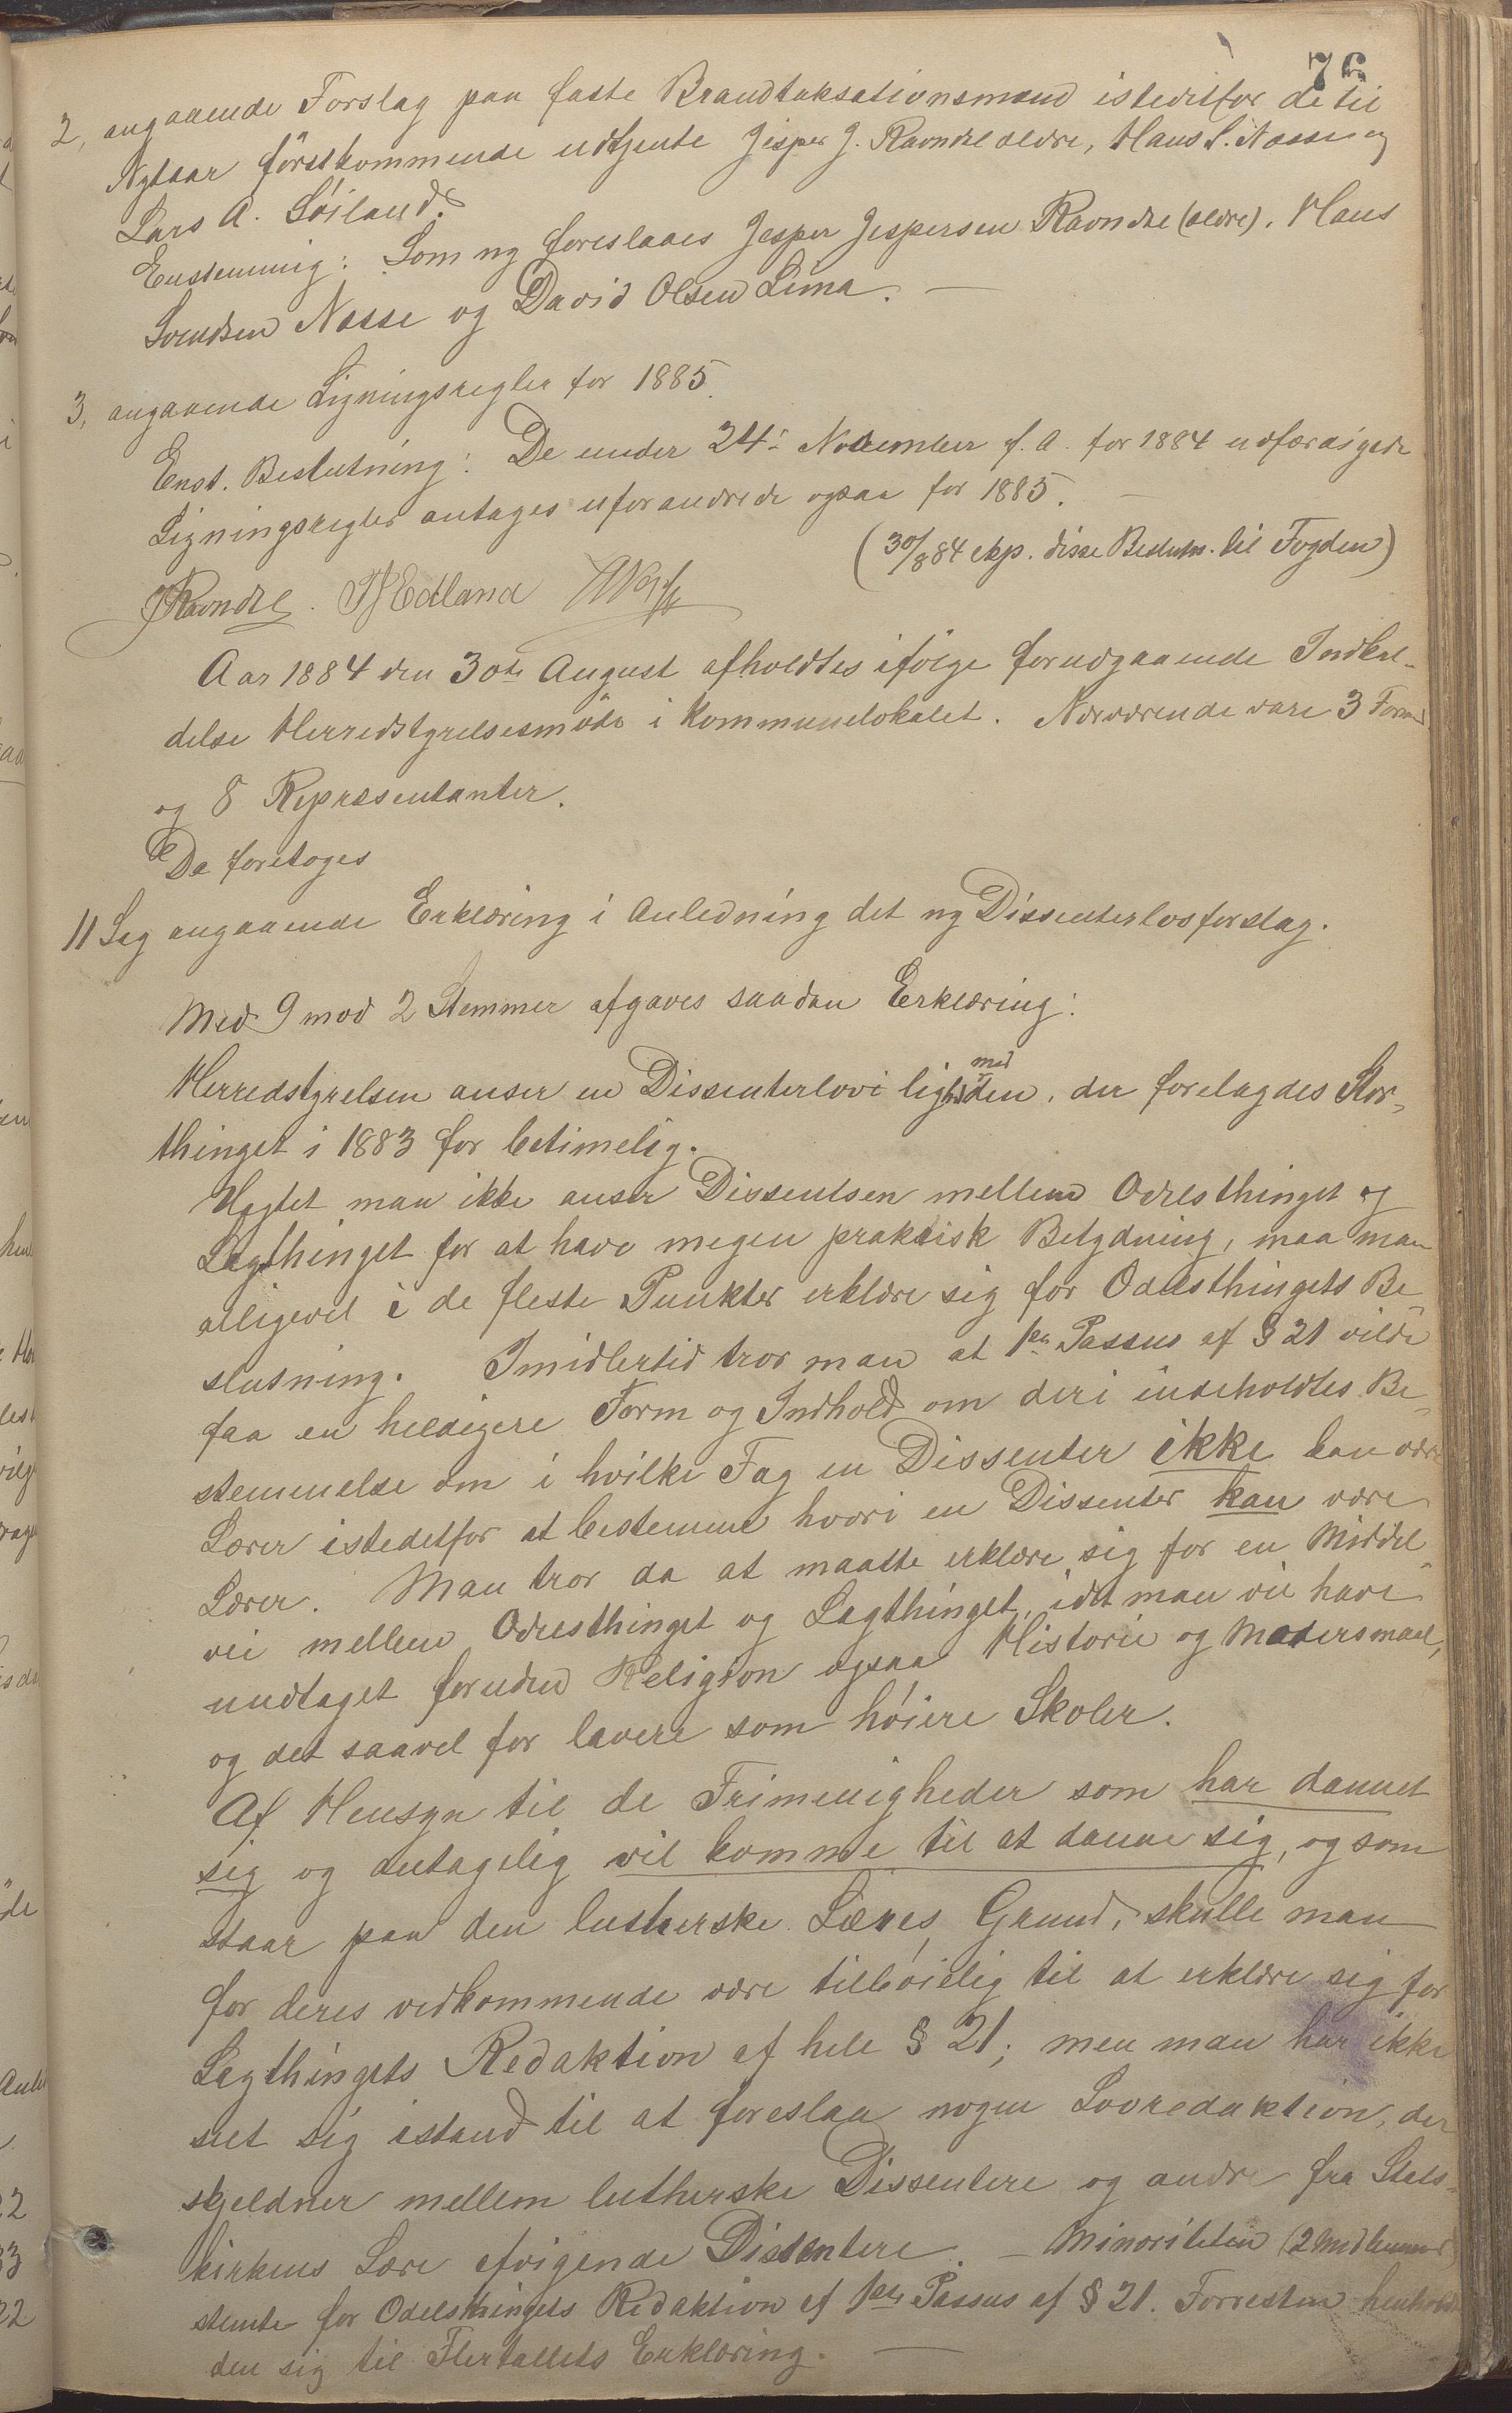 76
2, angaaende Forslag paa faste Brandtaksationsmænd istedetfor de til
Nytaar förstkommende udtjente Jesper J. Ravndal ældre, Hans S. Næsse og
Lars A. Söiland.
Enstemmig: Som ny foreslaaes Jesper Jespersen Ravndal (ældre), Hans
Svendsen Næsse og David Olsen Lima. —
3, angaaende Ligningsregler for 1885.
Enst. Beslutning: De under 24de November f. A. for 1884 udfærdigede
Ligningsregler antages uforandrede ogsaa for 1885. —
(30/8 84 exp. disse Beslutn. til Fogden)
JRavndal. Edland
Aar 1884 den 30te August afholdtes ifölge forudgaaende Indkal-
delse Herredstyrelsesmöde i Kommunelokalet. Nærværende vare 3 Formd
og 8 Repræsentanter.
Da foretoges
1) Sag angaaende Erklæring i Anledning det ny Dissenterlovforslag.
Med 9 mod 2 Stemmer afgaves saadan Erklæring:
Herredstyrelsen anser en Dissenterlov i lighed med den, der forelagdes Stor-
thinget i 1883 for betimelig.
Uagtet man ikke anser Dissentsen mellem Odelsthinget og
Lagthinget for at have megen praktisk Betydning, maa man
alligevel i de fleste Punkter erklære sig for Odelsthingets Be-
slutning. Imidlertid tror man at 1ste Passus af § 21 vilde
faa en heldigere Form og Indhold om deri indeholdtes Be-
stemmelse om i hvilke Fag en Dissenter ikke kan være
Lærer istedetfor at bestemme hvori en Dissenter kan være
Lærer. Man tror da at maatte erklære sig for en Middel-
vei mellem Odelsthinget og Lagthinget, idet man vil have
undtaget foruden Religion ogsaa Historie og Modersmaal,
og det saavel for lavere som höiere Skoler.
Af Hensyn til de Frimenigheder som har dannet
sig og antagelig vil komme til at danne sig, og som
staar paa den lutherske Læres Grund, skulle man
for deres vedkommende være tilböielig til at erklære sig for
Lagthingets Redaktion af hele § 21; men man har ikke
seet sig istand til at foreslaa nogen Lovredaktion, der
skjeldner mellem lutherske Dissentere og andre fra Stats-
kirkens Lære afvigende Dissentere. — Minoriteten (2 Medlemmer)
stemte for Odelsthingets Redaktion af 1ste Passus af § 21. Forresten henholdt
den sig til Flertallets Erklæring. —